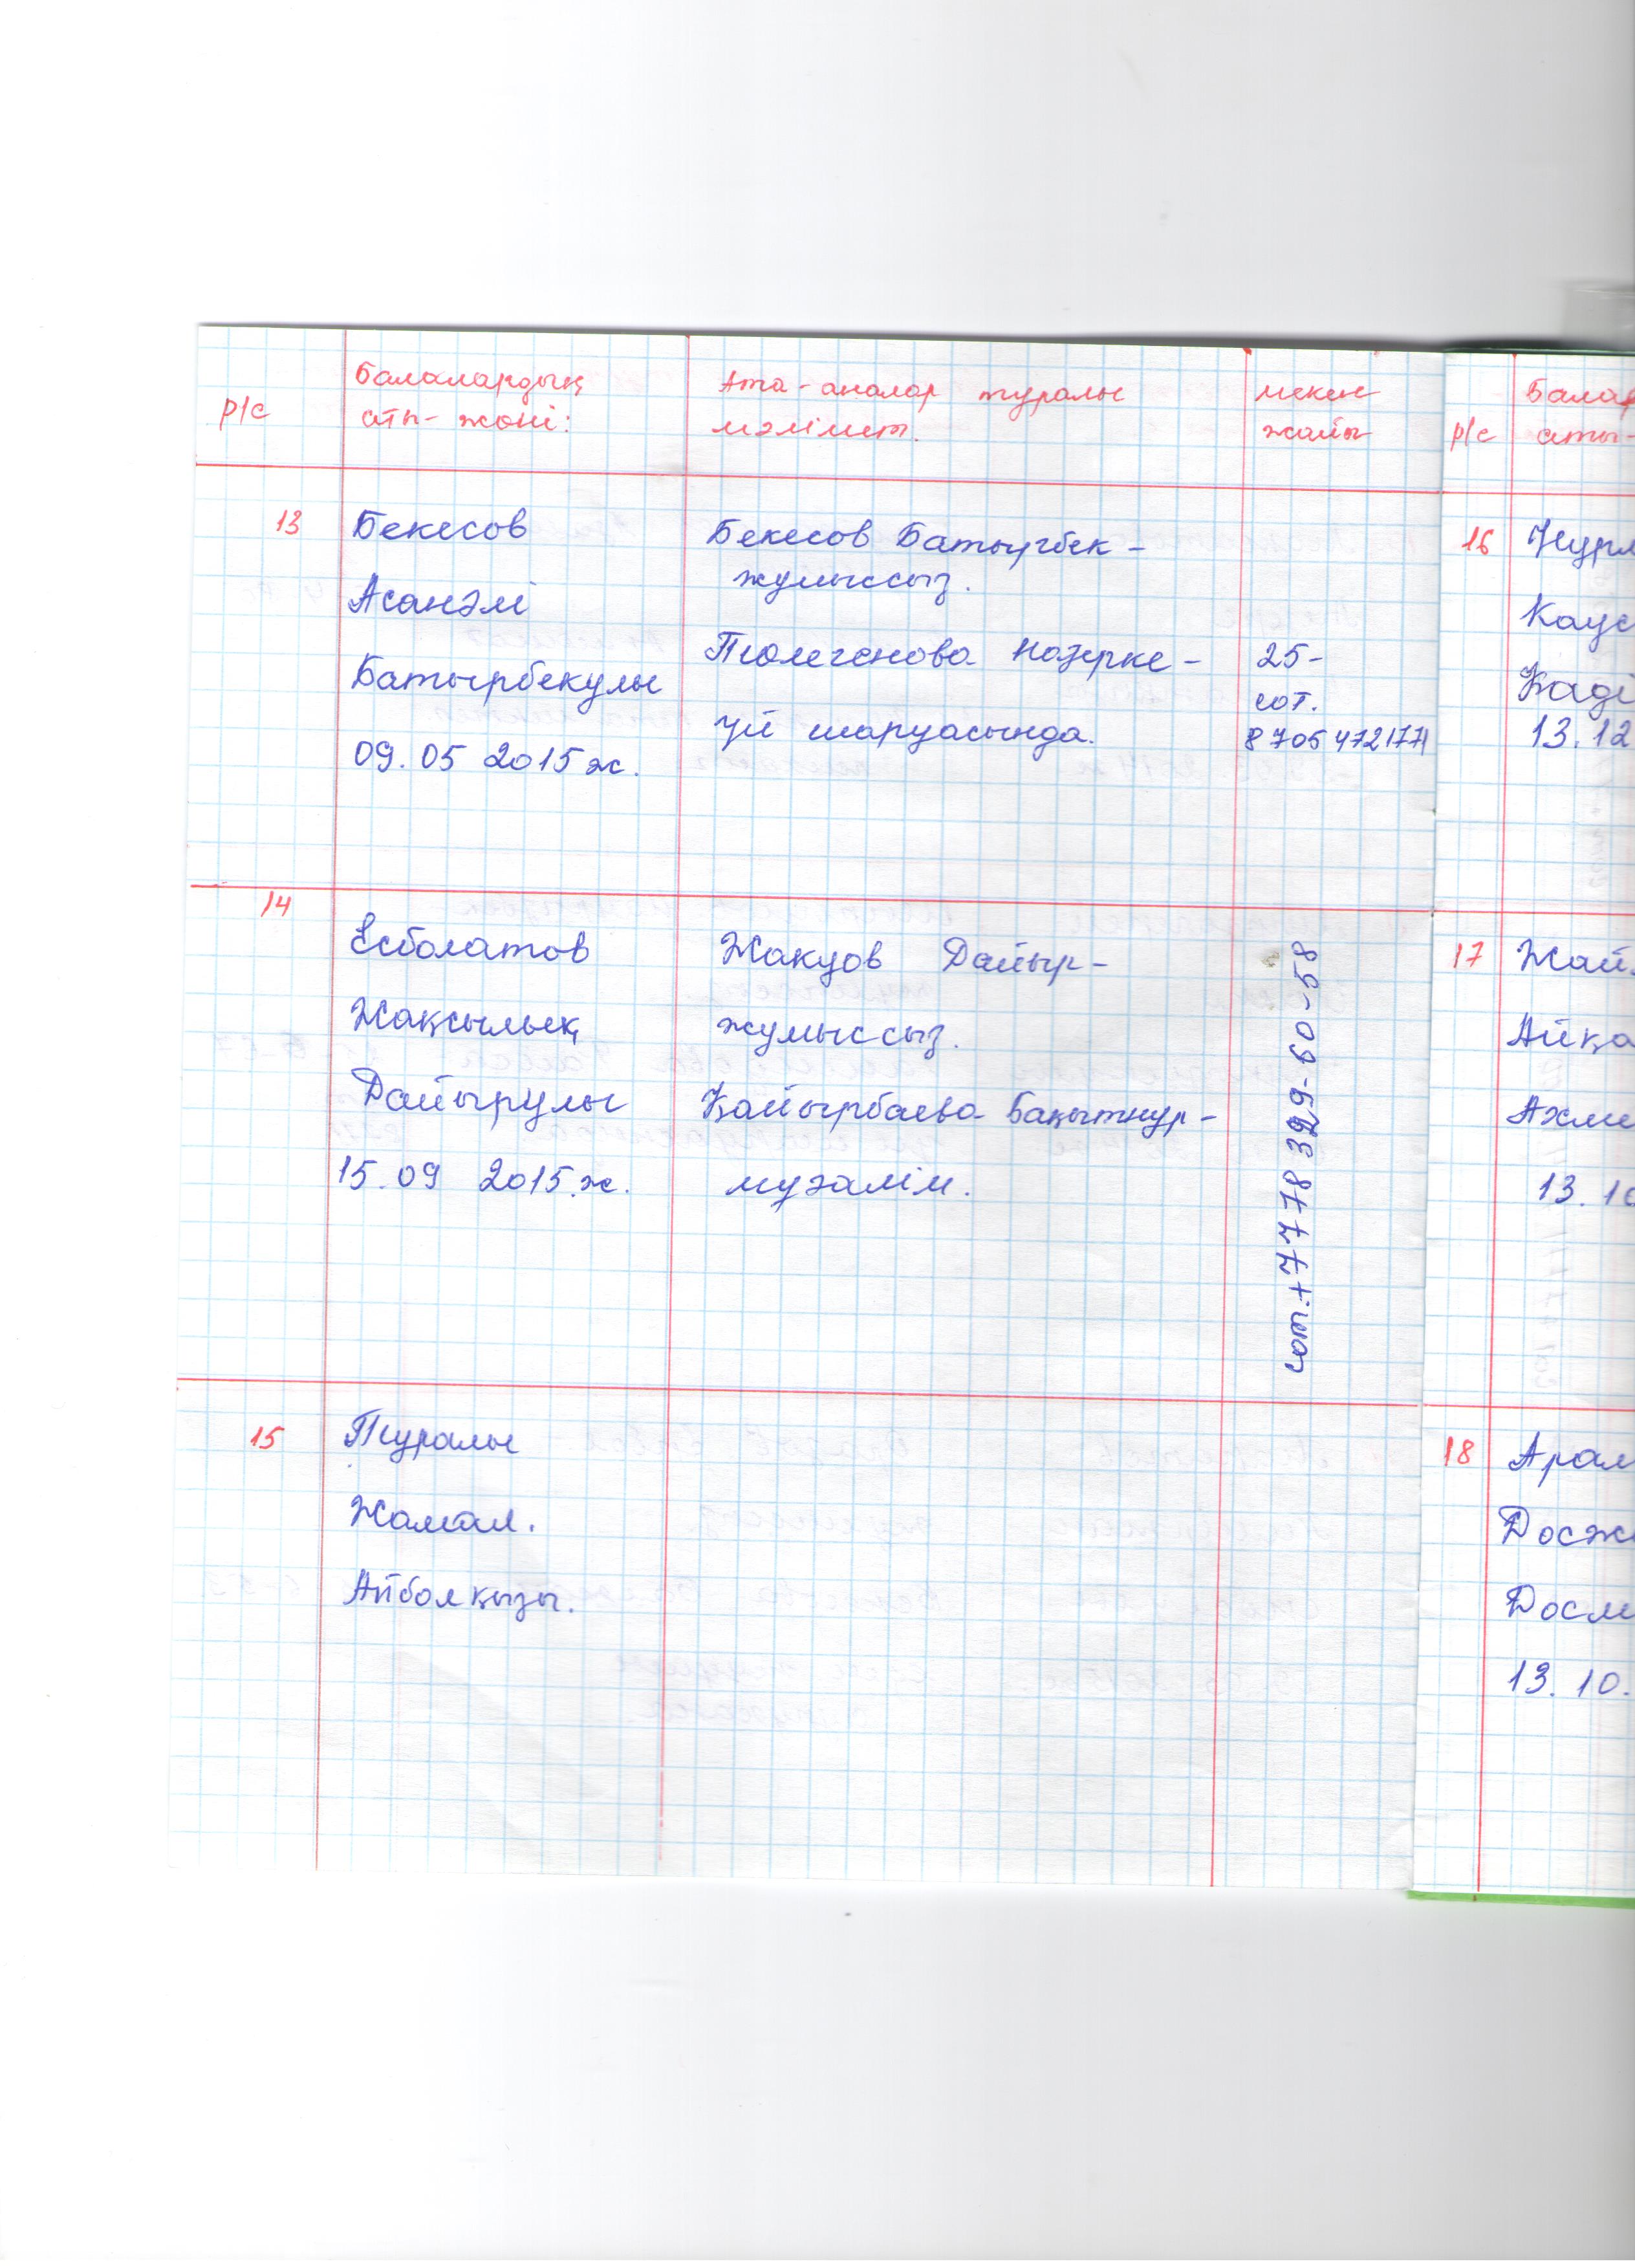 р/с
Балалардың
аты-жөні:
Ата-аналар туралы
мәлімет.
мекен
жайы
13
Бекесов
Асанәлі
Батырбекулы
09.05 2015ж.
Бекесов Батыгбек -
жумыссыз.
Тюлегенова Назерке -
Үй шаруасында.
25-
сот.
8 705 4721771
14
Есболатов
Жақсылық
Дайырулы
15.09 2015.ж.
Жакуов Дайыр-
жумыссыз.
Қайырбаева Бақытнур-
мұғалім.
сот.:+7778 329-60-58
15
Туралы
Жамал.
Айболқызы.
р/с
Балал
аты-
16
Нурл
Каус
Каді
13.12
17
Жай
Айқа
Ахме
13.10
18
Арал
Досж
Досм
13.10.